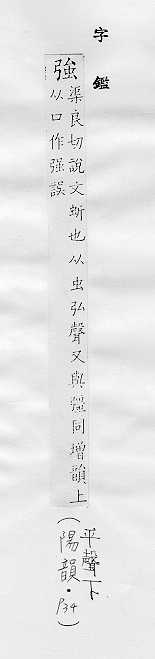 字鑑
強
渠良切說文蚚也从虫弘聲又與彊同增韻上
从口作强誤
平聲下
(陽韻・P34)